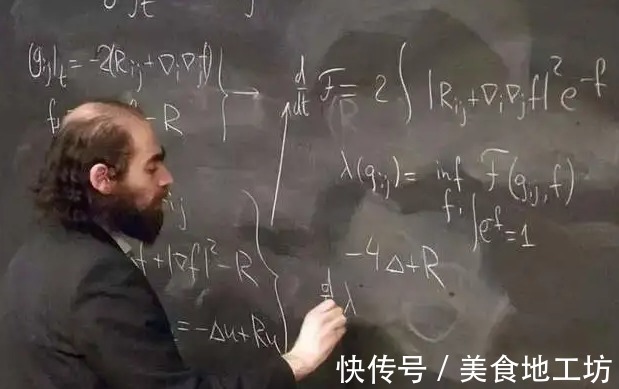 (g_ij)_t = -2(R_ij + ∇_i∇_j f)
² - R
→ d/dt F = 2 ∫ |R_ij + ∇_i∇_j f|² e^-f
λ(g_ij) = inf F(g_ij, f)
f, ∫e^-f = 1
ij
-4Δ + R
f + |∇f|² - R
= -Δu + Ru
λ
快传号 / 美食地工坊